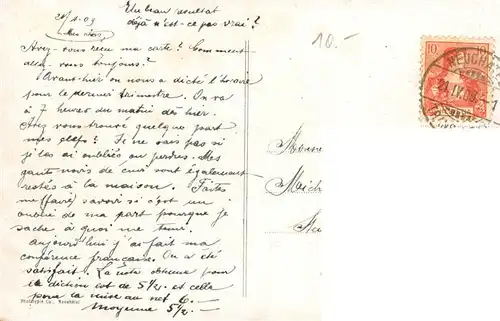 Un beau resultat
déjà n'est-ce pas vrai?
10.-
Avez-vous reçu ma carte? Comment
allez-vous toujours?
Avant-hier on nous a dicté l'horaire
pour le dernier trimestre. On va
à 7 heures du matin dès hier.
Avez vous trouvé quelque part
mes ? Je ne sais pas si
je les ai oubliés ou perdus. Mes
gants noirs de cuir sont également
restés à la maison. Faites
me (faire) savoir si c'est un
oubli de ma part pourque je
sache à quoi me tenir.
Aujourd'hui j'ai fait ma
conférence française. On a été
satisfait. La note obtenue pour
la diction est de 5½ et celle
pour la mise au net 6.-
Moyenne 5½.-
Phototypie Co., Neuchâtel
10
NEUCH
21.IV.09